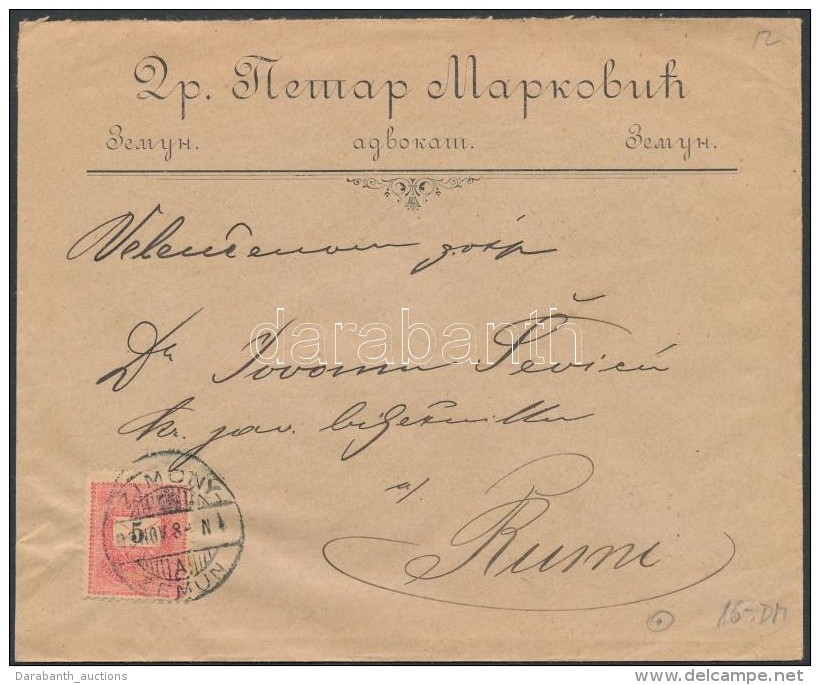 12
Др. Петар Марковић
Земун. адвокат. Земун.
Velenčenom gosp
Dr Jovanu Ševiću
kr. jav. bilježniku
u/
Rumi
ZIMONY
5
NOV. 8 - N 1
A
ZEMUN
15.- DM
darabanth
Darabanth_auctions
www.delcampe.net